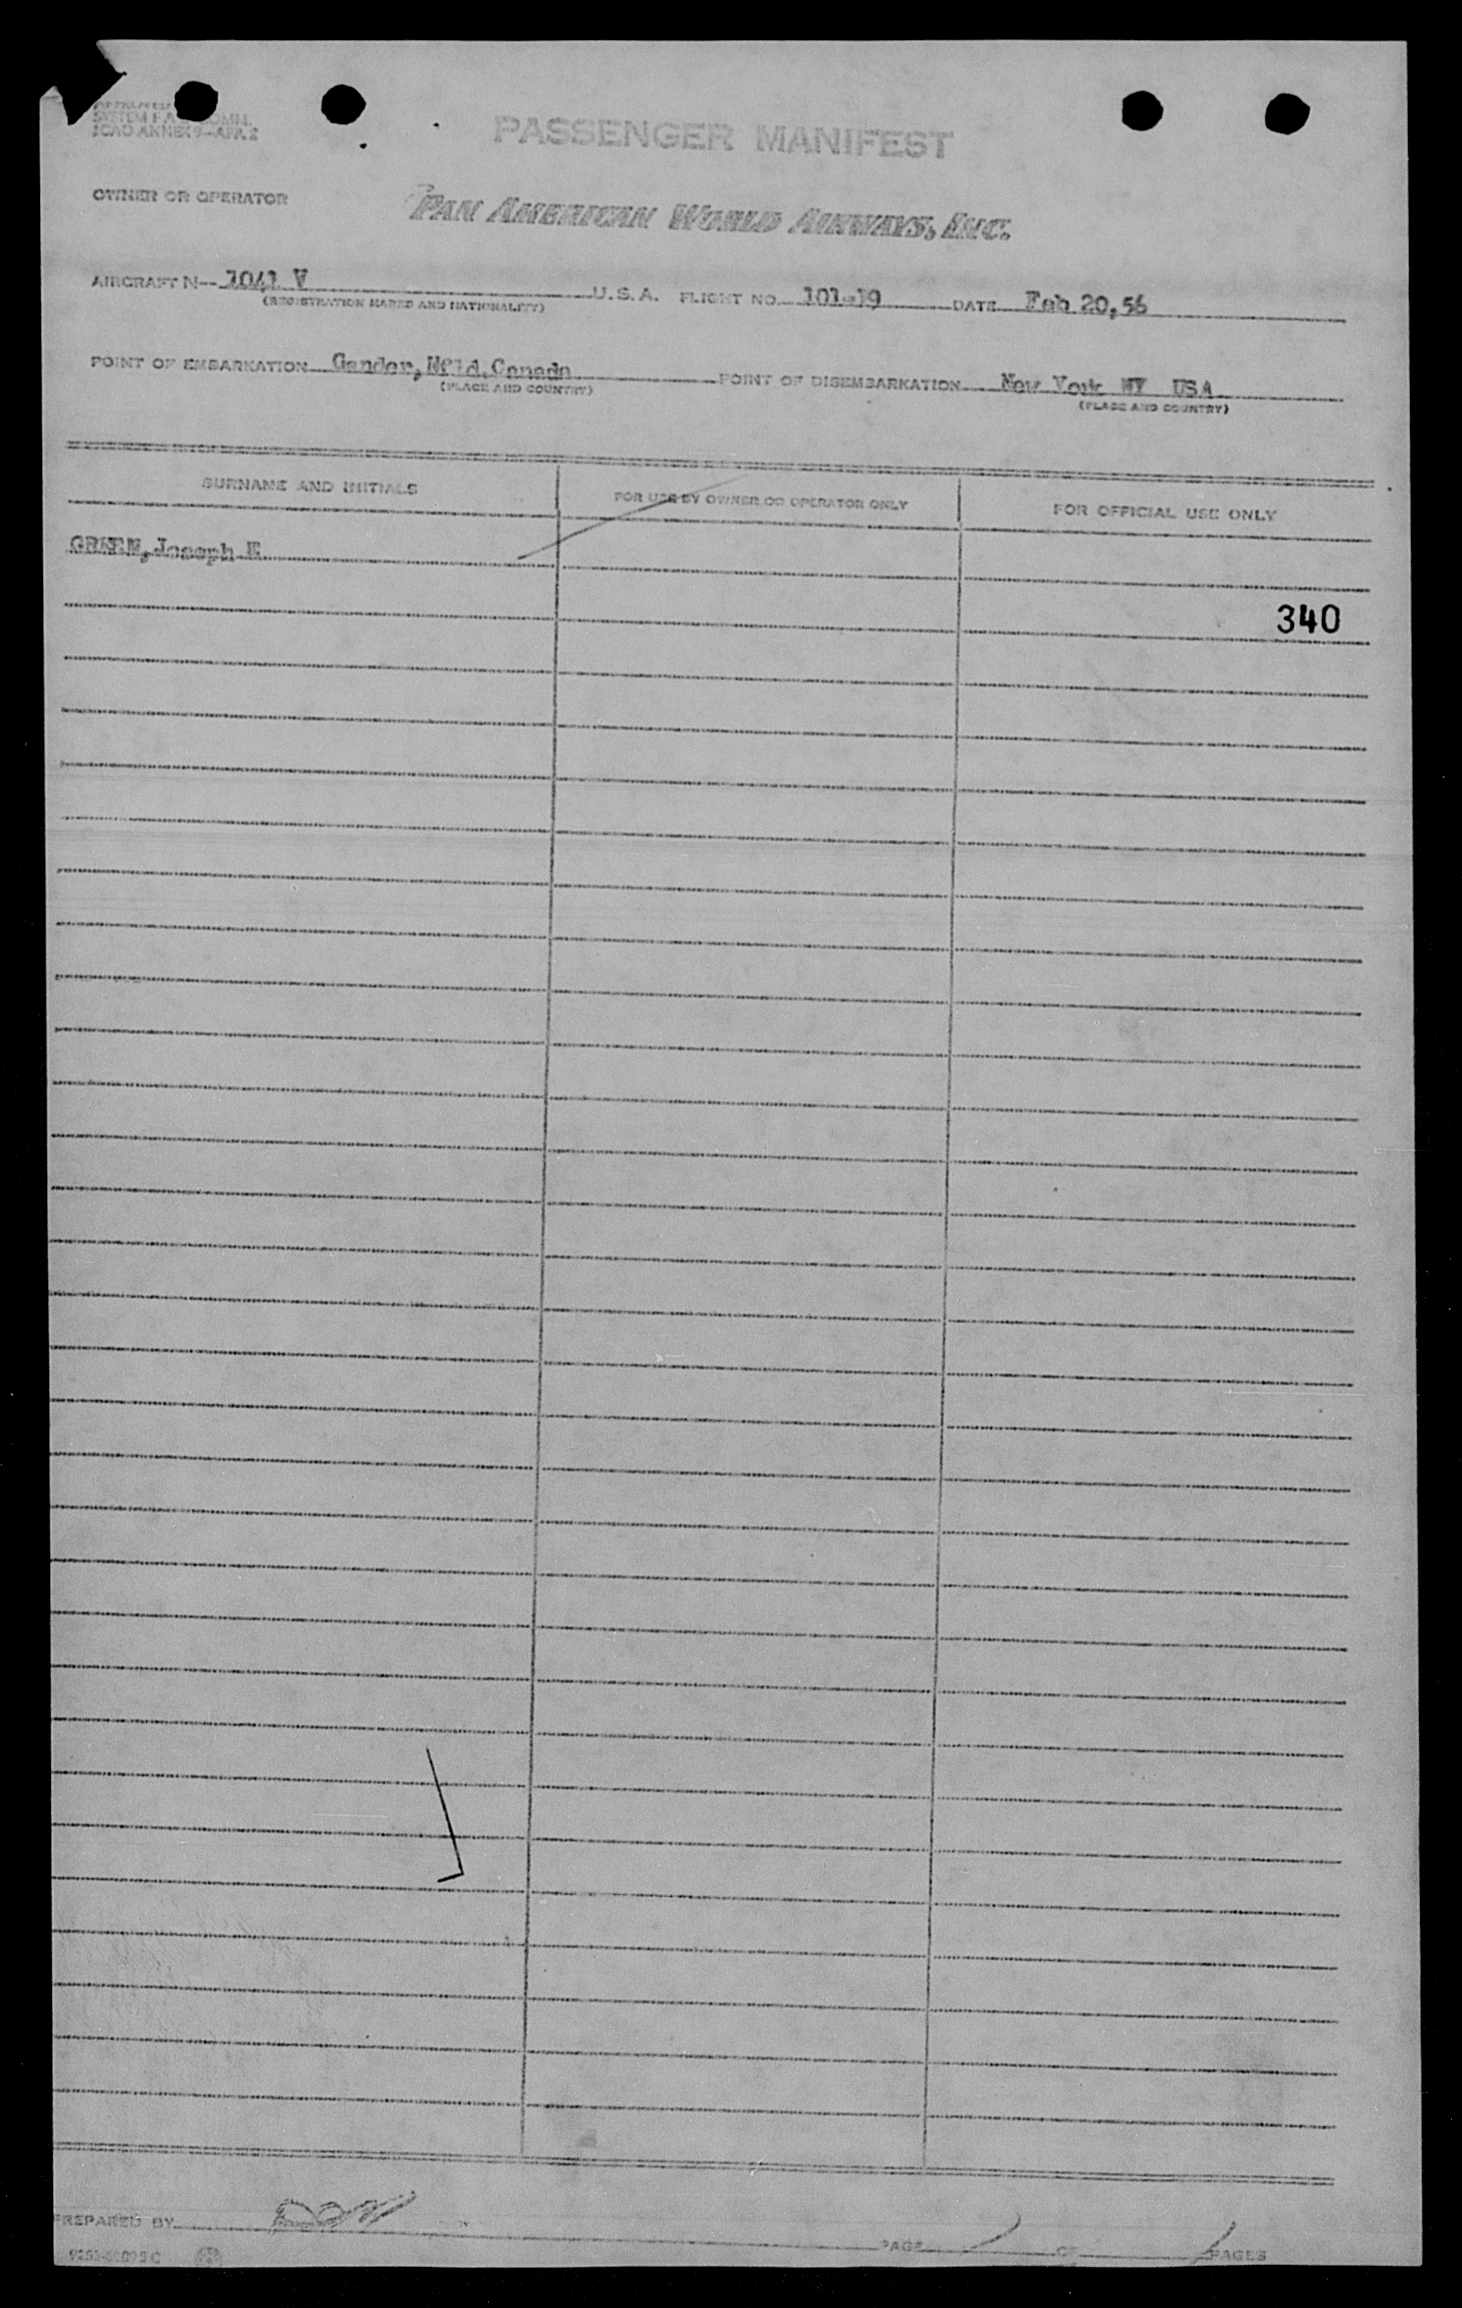 SYSTEM F.A. COMM.
ICAO ANNEX 9-APP. 2
PASSENGER MANIFEST
OWNER OR OPERATOR PAN AMERICAN WORLD AIRWAYS, INC.
AIRCRAFT N-- 1041 V U.S.A. FLIGHT NO. 101-19 DATE Feb 20,56
(REGISTRATION MARKS AND NATIONALITY)
POINT OF EMBARKATION Gander, Nfld. Canada POINT OF DISEMBARKATION New York NY USA
(PLACE AND COUNTRY) (PLACE AND COUNTRY)
SURNAME AND INITIALS FOR USE BY OWNER OR OPERATOR ONLY FOR OFFICIAL USE ONLY
GREEN, Joseph E
340
PREPARED BY
PAGE 1 OF 1 PAGES